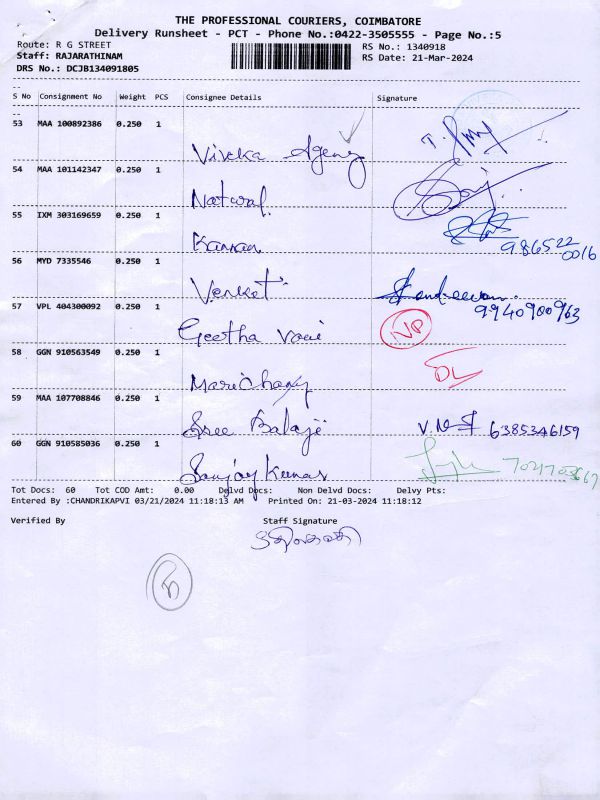 THE PROFESSIONAL COURIERS, COIMBATORE
Delivery Runsheet - PCT - Phone No.:0422-3505555 - Page No.:5
Route: R G STREET
RS No.: 1340918
Staff: RAJARATHINAM
RS Date: 21-Mar-2024
DRS No.: DCJB134091805
S No Consignment No Weight PCS Consignee Details Signature
53 MAA 100892386 0.250 1
Viveka Agency
54 MAA 101142347 0.250 1
Natural
55 IXM 303169659 0.250 1
Kannan
98652 22 0016
56 MYD 7335546 0.250 1
Venket
9940900963
57 VPL 404300092 0.250 1
Geetha Vani NP
58 GGN 910563549 0.250 1
DL
59 MAA 107708846 0.250 1
Sree Balaji 6385346159
60 GGN 910585036 0.250 1
Sanjay Kumar
Tot Docs: 60 Tot COD Amt: 0.00 Delvd Docs: Non Delvd Docs: Delvy Pts:
Entered By :CHANDRIKAPVI 03/21/2024 11:18:13 AM Printed On: 21-03-2024 11:18:12
Verified By Staff Signature